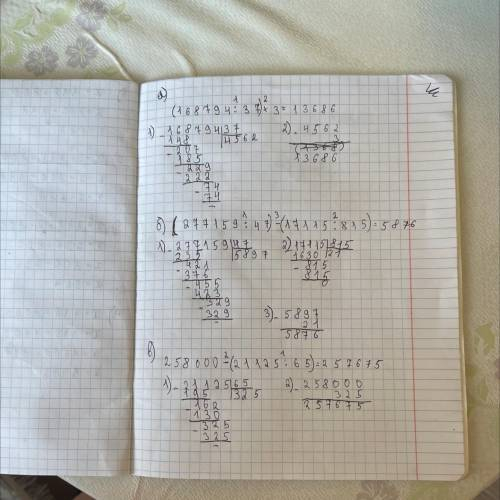 а)
(168794 : 37) × 3 = 13686
1) 168794 | 37
148 | 4562
207
185
229
222
74
74
2) 4562
3
13686
б)
(277159 : 47) - (17115 : 815) = 5876
1) 277159 | 47
235 | 5897
421
376
455
423
329
329
2) 17115 | 815
1630 | 21
815
815
0
3) 5897
21
5876
в)
258000 - (21125 : 65) = 257675
1) 21125 | 65
195 | 325
162
130
325
325
2) 258000
325
257675